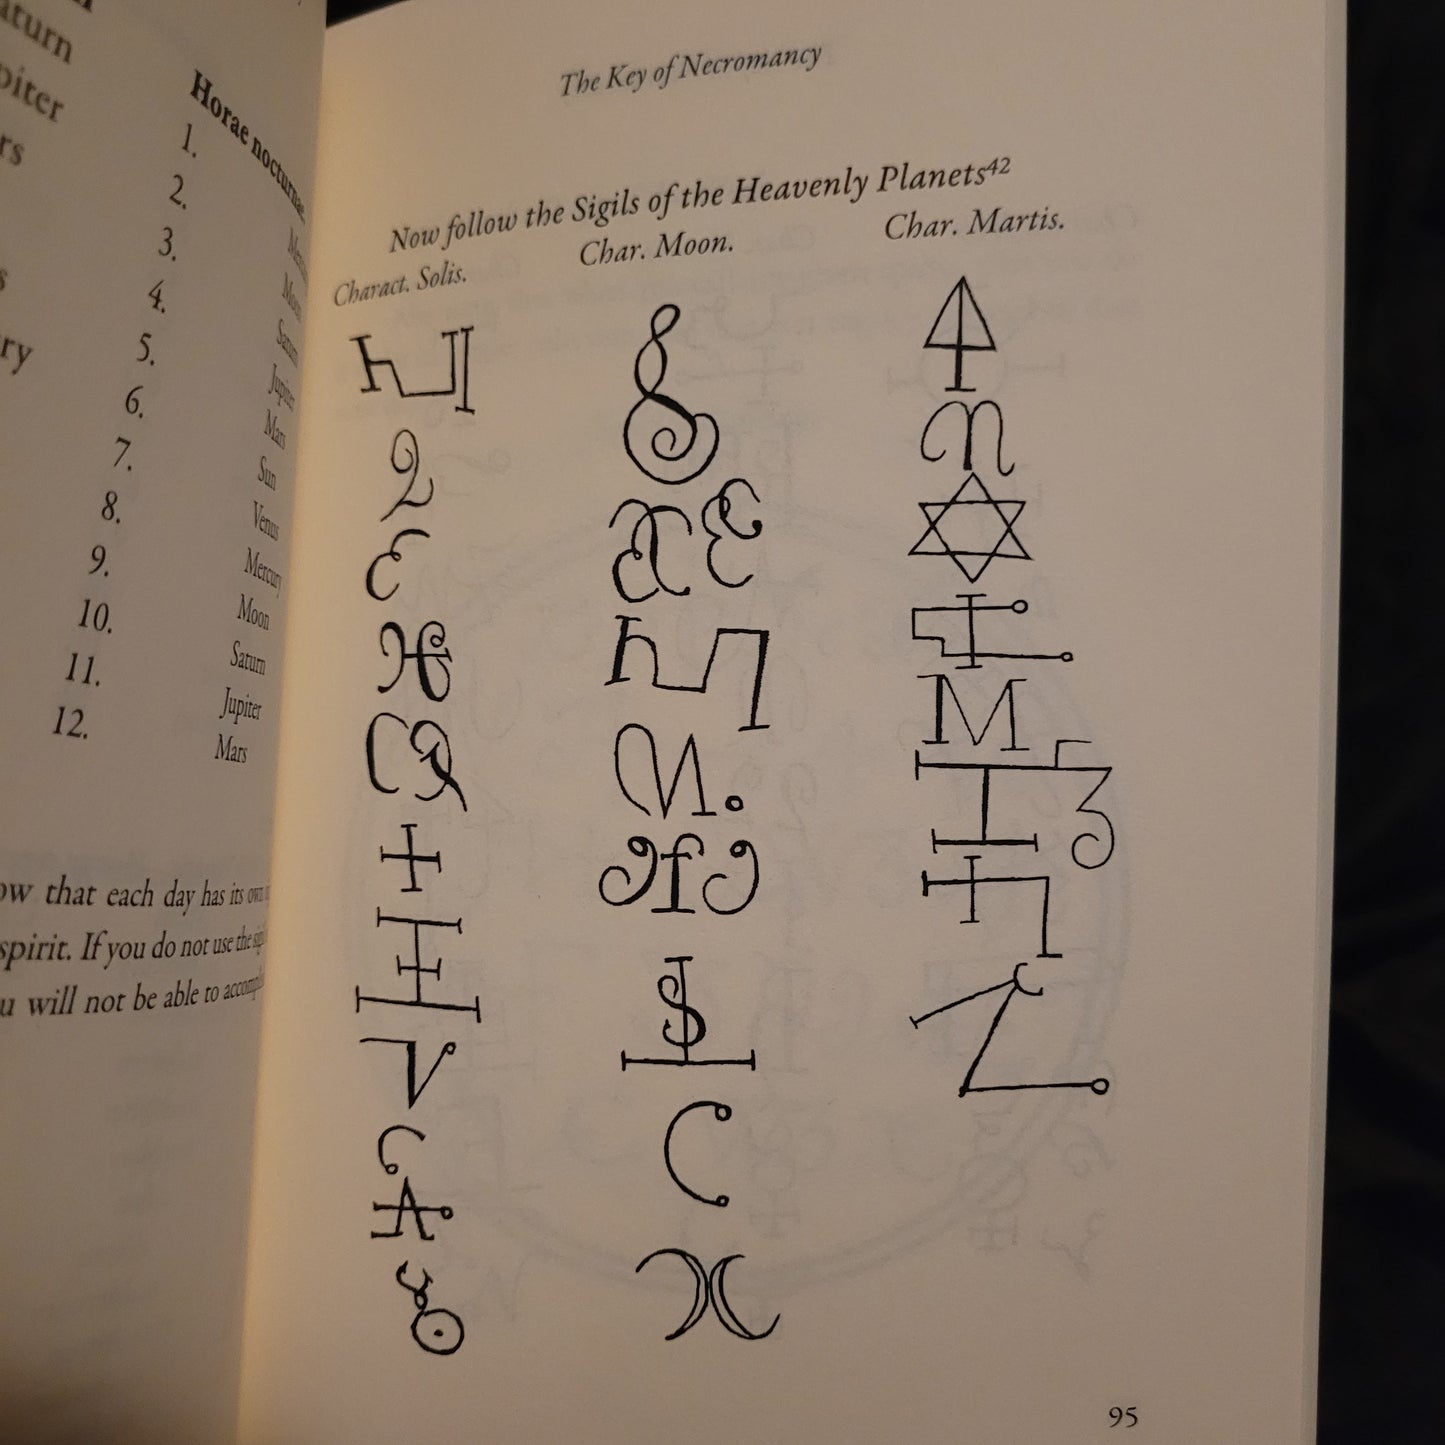 aturn
piter
rs
s
ry
Horae nocturnae
1.
2.
3.
4.
5. Jupiter
6. Mars
7. Sun
8. Venus
9. Mercury
10. Moon
11. Saturn
12. Jupiter
Mars
ow that each day has its own
spirit. If you do not use the
u will not be able to
The Key of Necromancy
Now follow the Sigils of the Heavenly Planets⁴²
Charact. Solis. Char. Moon. Char. Martis.
M
95